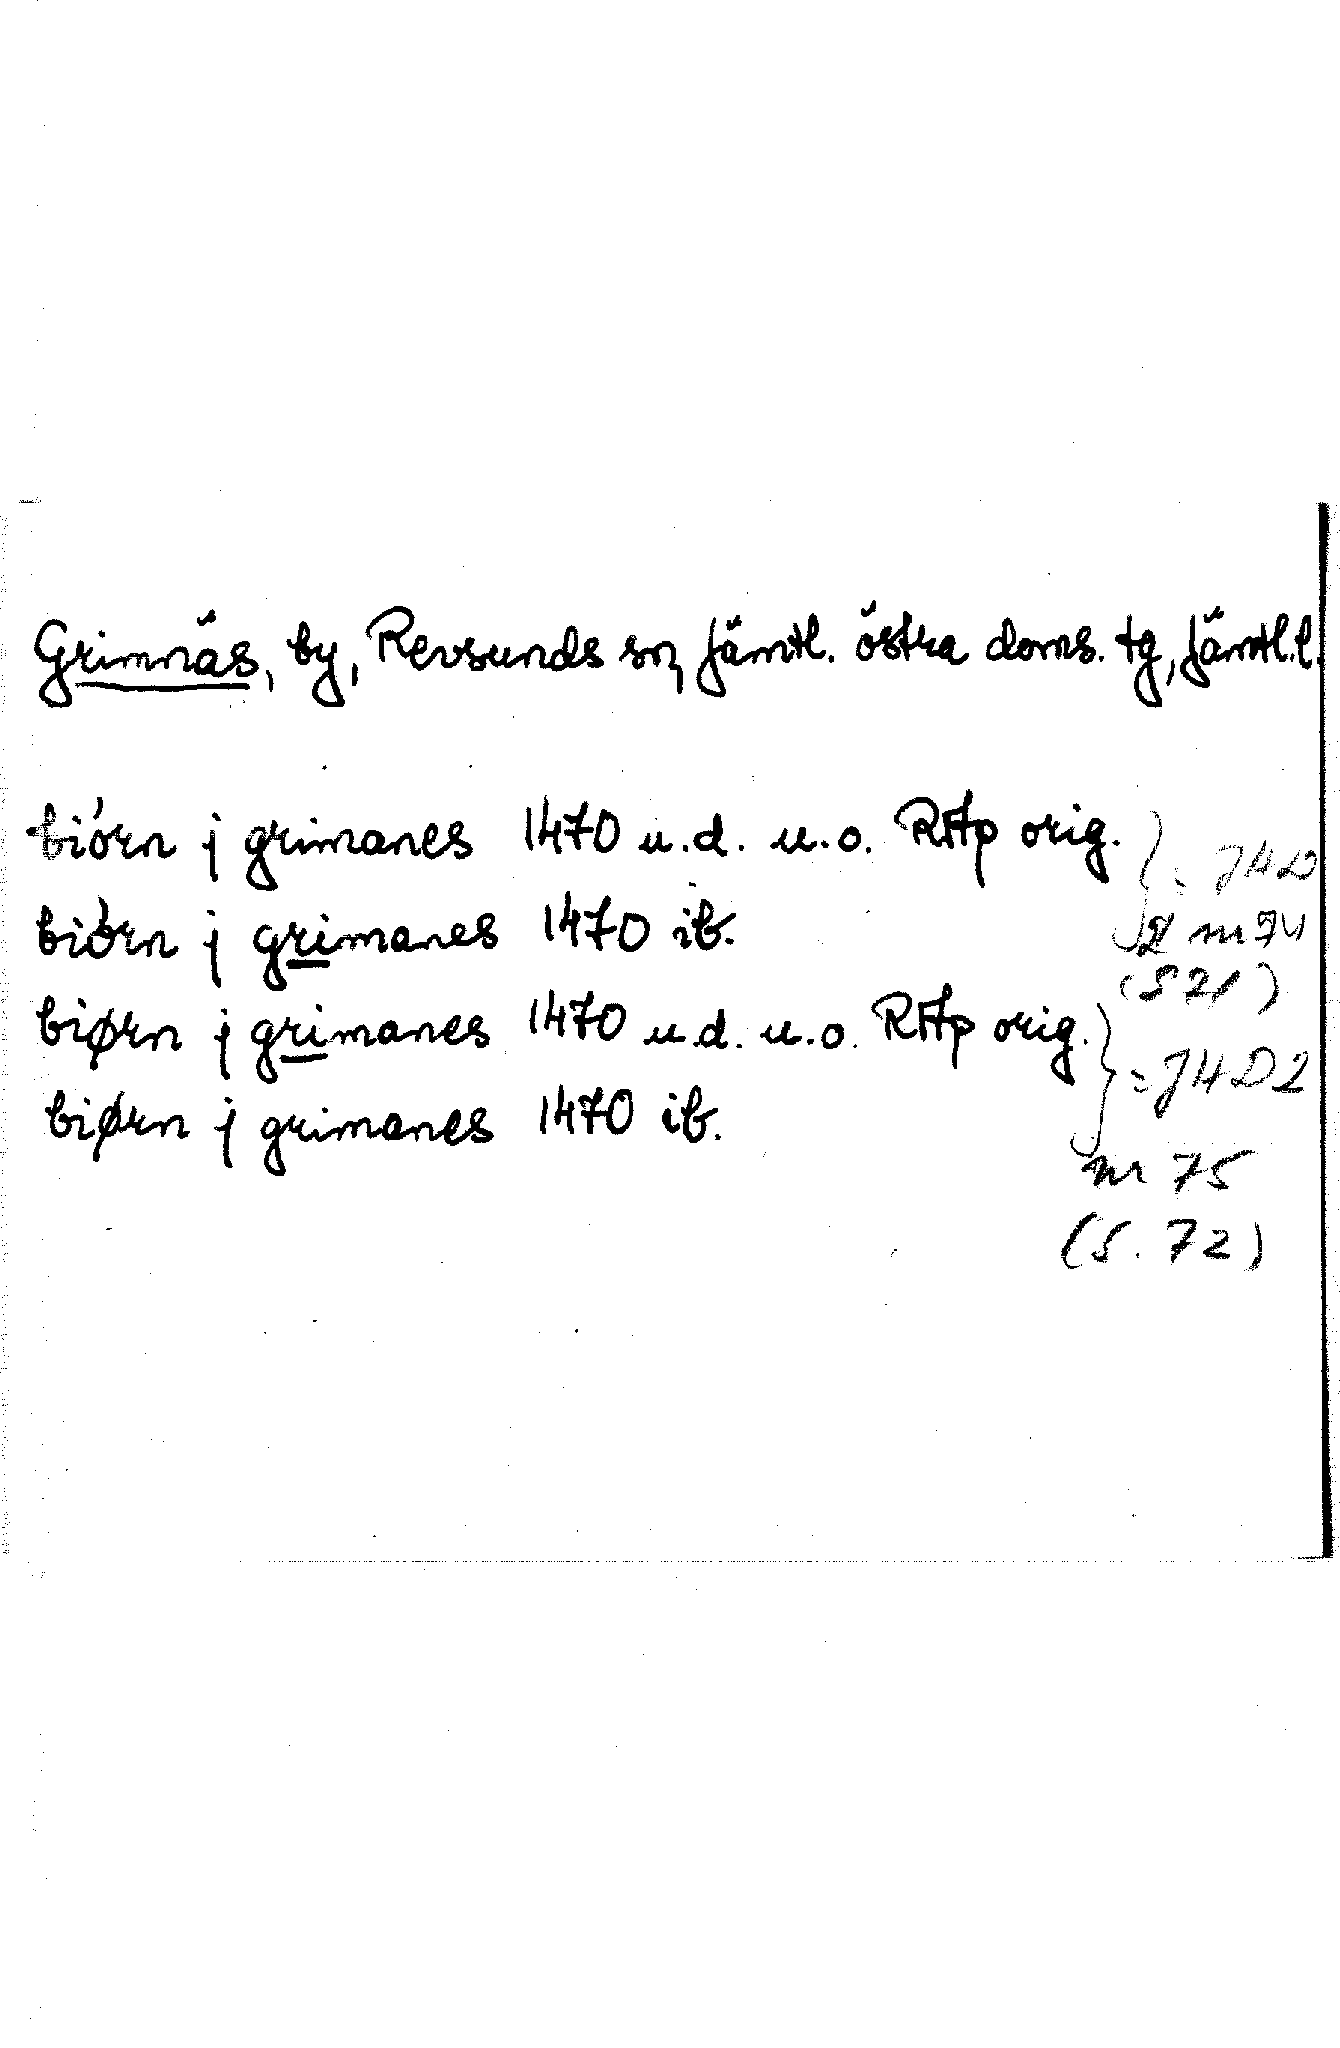 Grimnäs, by, Revsunds sn, Jämtl. östra doms. tg, Jämtl.l.
biórn j grimanes 1470 u.d. u.o. RAp orig.
= JHD
biórn j grimanes 1470 ib.
2 nr 74
(S 71)
biørn j grimanes 1470 u.d. u.o. RAp orig.
= JHD 2
biørn j grimanes 1470 ib.
nr 75
(S. 72)